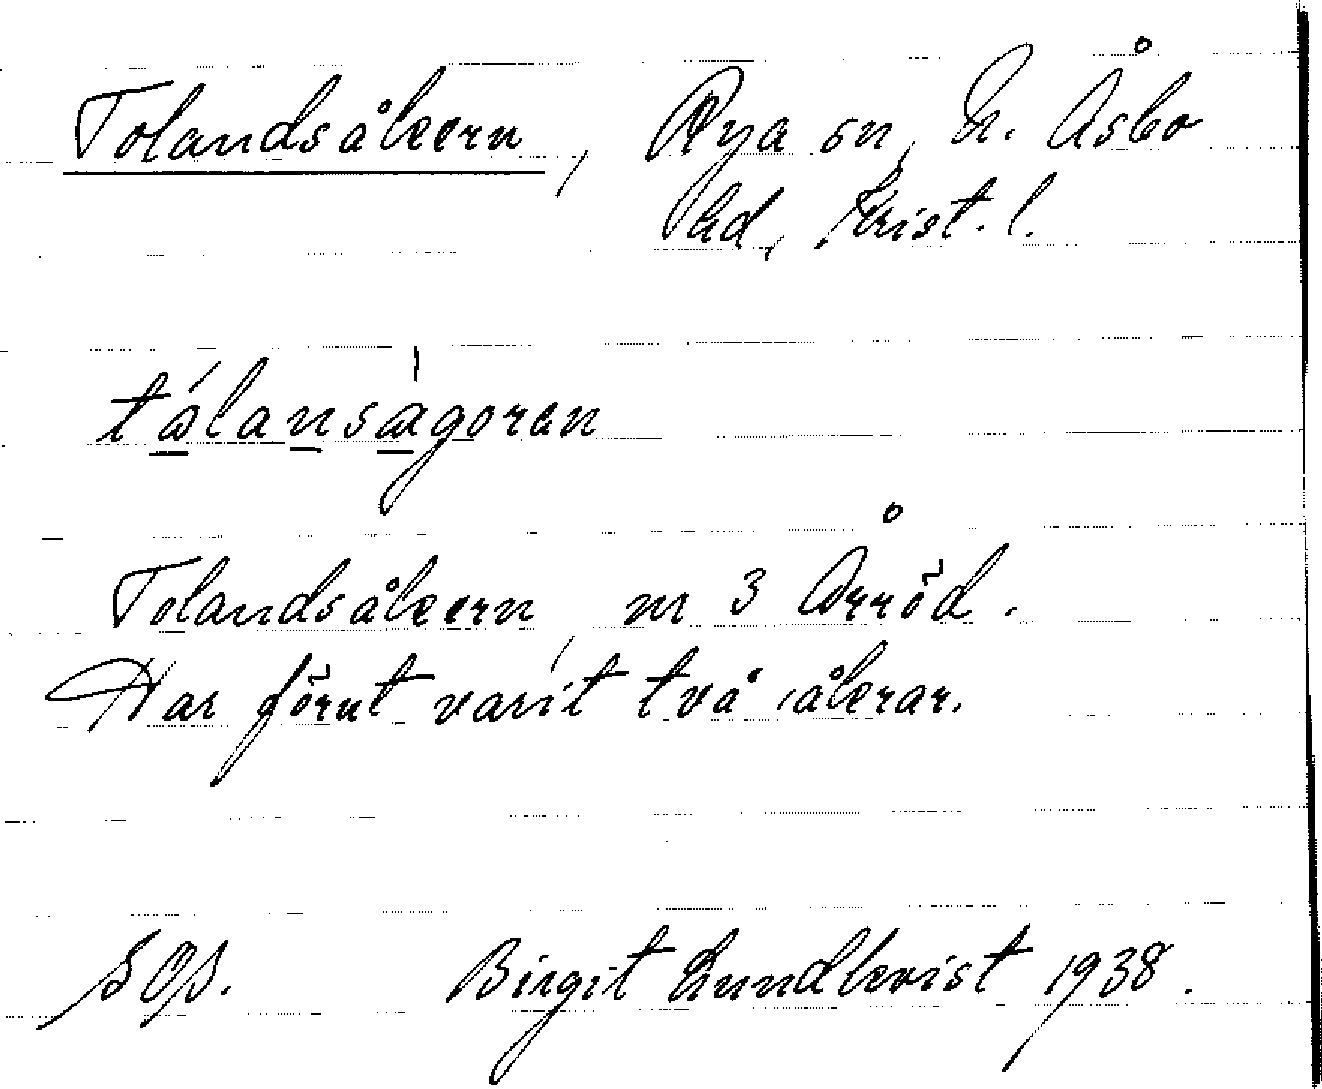 Tolandsåkern, Rya sn, N. Åsbo
hd, Krist. l.
tålansågoren
Tolandsåkern, nr 3 Årröd.
Har förut varit två åkrar.
Birgit Lundkvist 1938.